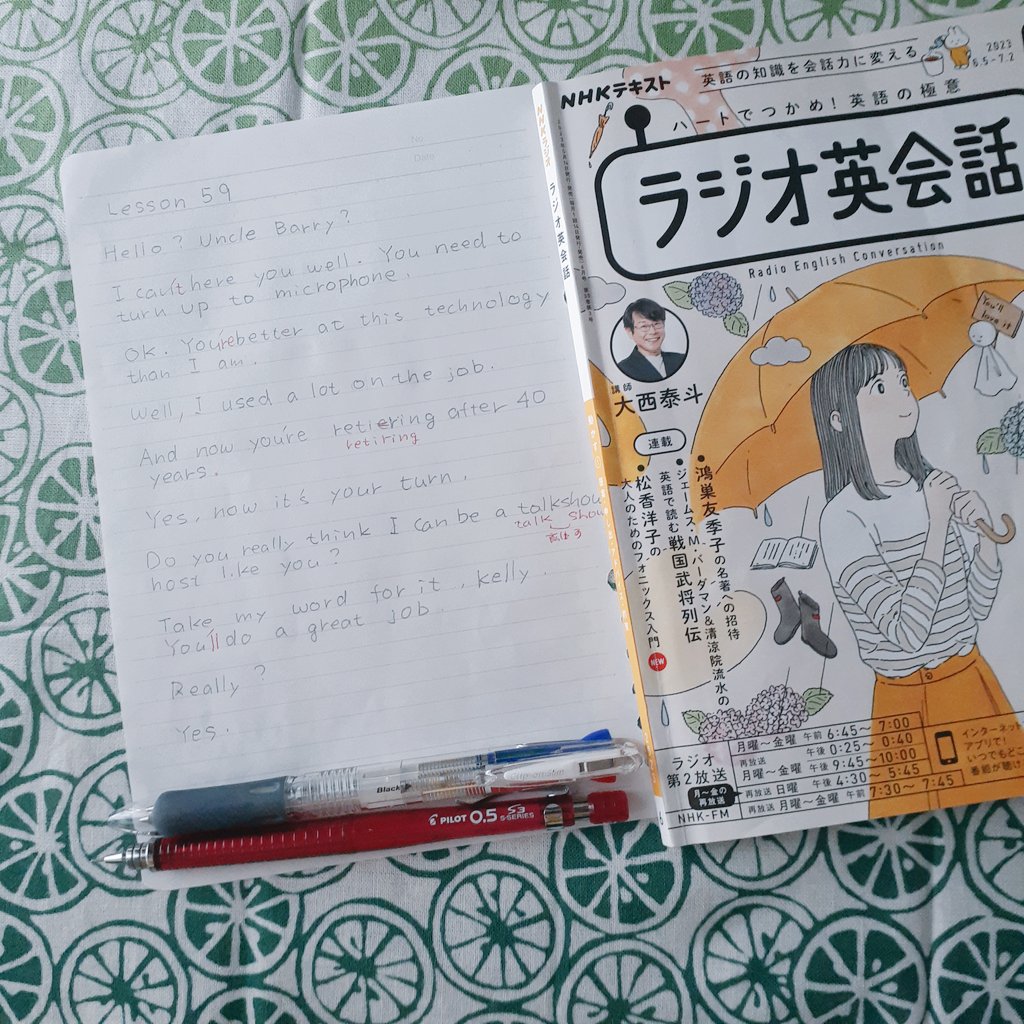 No.
Date
Lesson 59
Hello? Uncle Barry?
I can't here you well. You need to
turn up to microphone.
OK. You're better at this technology
than I am.
Well, I used a lot on the job.
And now you're retiering after 40
retiring
years.
Yes, now it's your turn.
Do you really think I can be a talkshow
talk show
host like you?
Take my word for it, kelly.
You'll do a great job.
Really?
Yes.
Black
PILOT 0.5 S3
S-SERIES
NHKラジオ ラジオ英会話
NHKテキスト
英語の知識を会話力に変える
2023
6.5~7.2
ハートでつかめ!英語の極意
ラジオ英会話
Radio English Conversation
You'll
love it
講師
大西泰斗
連載
●鴻巣友季子の名著への招待
●ジェームス・M・バーダマン&清涼院流水の
英語で読む戦国武将列伝
●松香洋子の
大人のためのフォニックス入門
NEW
ラジオ
第2放送
月曜~金曜 午前 6:45~7:00
再放送 午後 0:25~0:40
月曜~金曜 午後 9:45~10:00
月~金の
再放送
再放送 日曜 午後 4:30~5:45
NHK-FM
再放送 月曜~金曜 午前 7:30~7:45
インターネット
アプリで!
いつでもどこ
番組が聴け